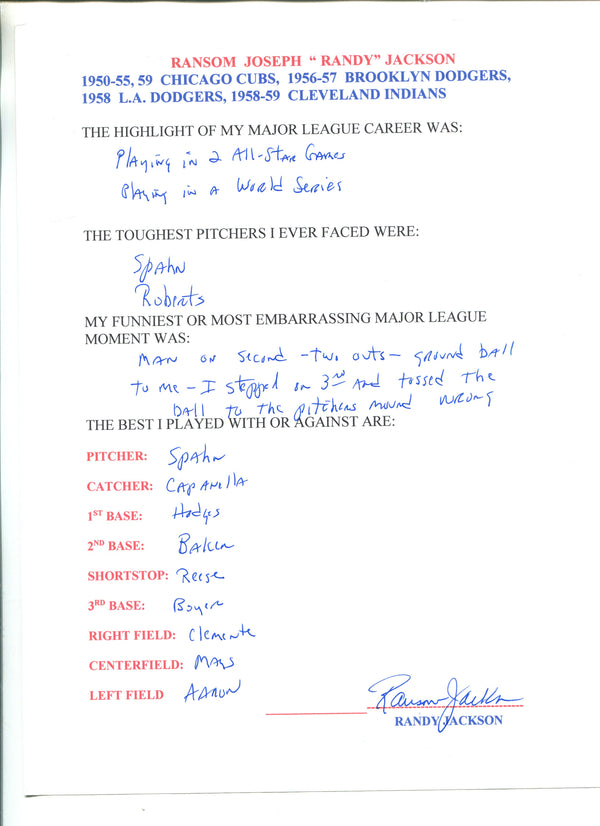 RANSOM JOSEPH “ RANDY” JACKSON
1950-55, 59 CHICAGO CUBS, 1956-57 BROOKLYN DODGERS,
1958 L.A. DODGERS, 1958-59 CLEVELAND INDIANS
THE HIGHLIGHT OF MY MAJOR LEAGUE CAREER WAS:
Playing in 2 All-Star Games
Playing in a World Series
THE TOUGHEST PITCHERS I EVER FACED WERE:
Spahn
Roberts
MY FUNNIEST OR MOST EMBARRASSING MAJOR LEAGUE
MOMENT WAS:
MAN on second - two outs - ground ball
to me - I stepped on 3rd and tossed the
ball to the pitchers mound WRONG
THE BEST I PLAYED WITH OR AGAINST ARE:
PITCHER: Spahn
CATCHER: Capanella
1ST BASE: Hodges
2ND BASE: Baker
SHORTSTOP: Reese
3RD BASE: Boyer
RIGHT FIELD: Clemente
CENTERFIELD: Mays
LEFT FIELD AARON
Ransom Jackson
RANDY JACKSON